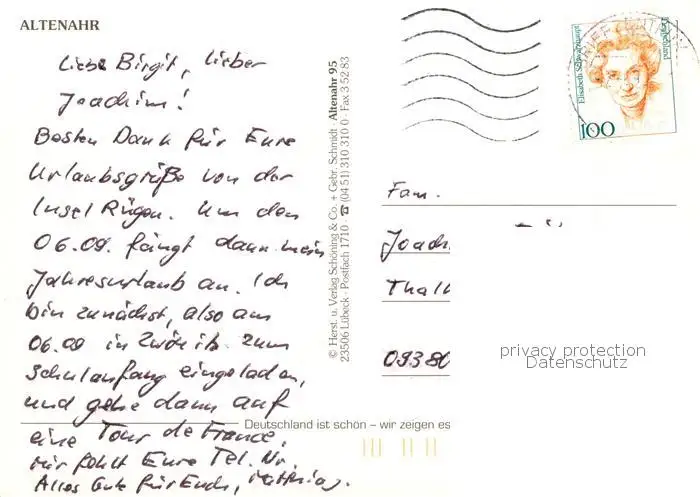 ALTENAHR
Liebe Birgit, lieber
Joachim!
Besten Dank für Eure
Urlaubsgrüße von der
Insel Rügen. Um den
06.09. fängt dann mein
Jahresurlaub an. Ich
bin zunächst, also am
06.09 in zum
Schulanfang eingeladen,
und gehe dann auf
eine Tour de France.
Mir fehlt Eure Tel. Nr.
Alles Gute für Euch, Matthias.
© Herst. u. Verlag Schöning & Co. + Gebr. Schmidt · Altenahr 95
23506 Lübeck · Postfach 1710 · ☎ (04 51) 310 310 0 · Fax 3 52 83
Deutschland ist schön – wir zeigen es
Elisabeth Schwarzhaupt
Deutschland
100
Fam.
Joach
Thalh
09380
privacy protection
Datenschutz